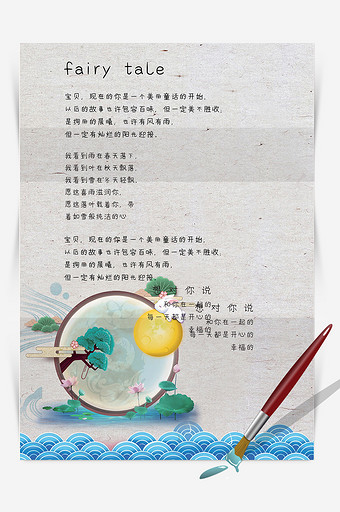 fairy tale
宝贝，现在的你是一个美丽童话的开始，
以后的故事也许包容百味，但一定美不胜收，
是绚丽的晨曦，也许有风有雨，
但一定有灿烂的阳光迎接。
我看到雨在春天落下，
我看到叶在秋天飘落，
我看到雪在冬天轻飘，
愿这喜雨滋润你，
愿这落叶载着你，带
着如雪般纯洁的心
宝贝，现在的你是一个美丽童话的开始，
以后的故事也许包容百味，但一定美不胜收，
是绚丽的晨曦，也许有风有雨，
但一定有灿烂的阳光迎接。
想对你说
和你在一起的
每一天都是开心的
幸福的
想对你说
和你在一起的
每一天都是开心的
幸福的